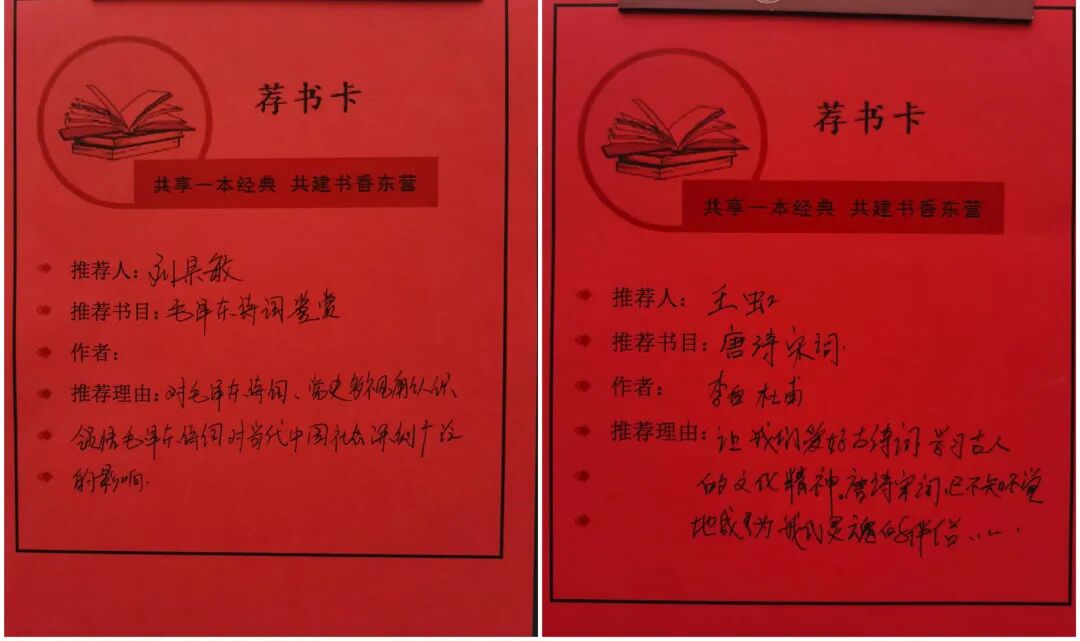 荐书卡
共享一本经典 共建书香东营
推荐人:刘景敏
推荐书目:毛泽东诗词鉴赏
作者:
推荐理由:对毛泽东诗词、党史多视角认识、
领悟毛泽东诗词对当代中国社会深刻广泛
的影响.
荐书卡
共享一本经典 共建书香东营
推荐人:王虹
推荐书目:唐诗宋词.
作者:李白 杜甫
推荐理由:让我们爱好古诗词 学习古人
的文化精神。唐诗宋词,已不知不觉
地成为我们灵魂的伴侣......